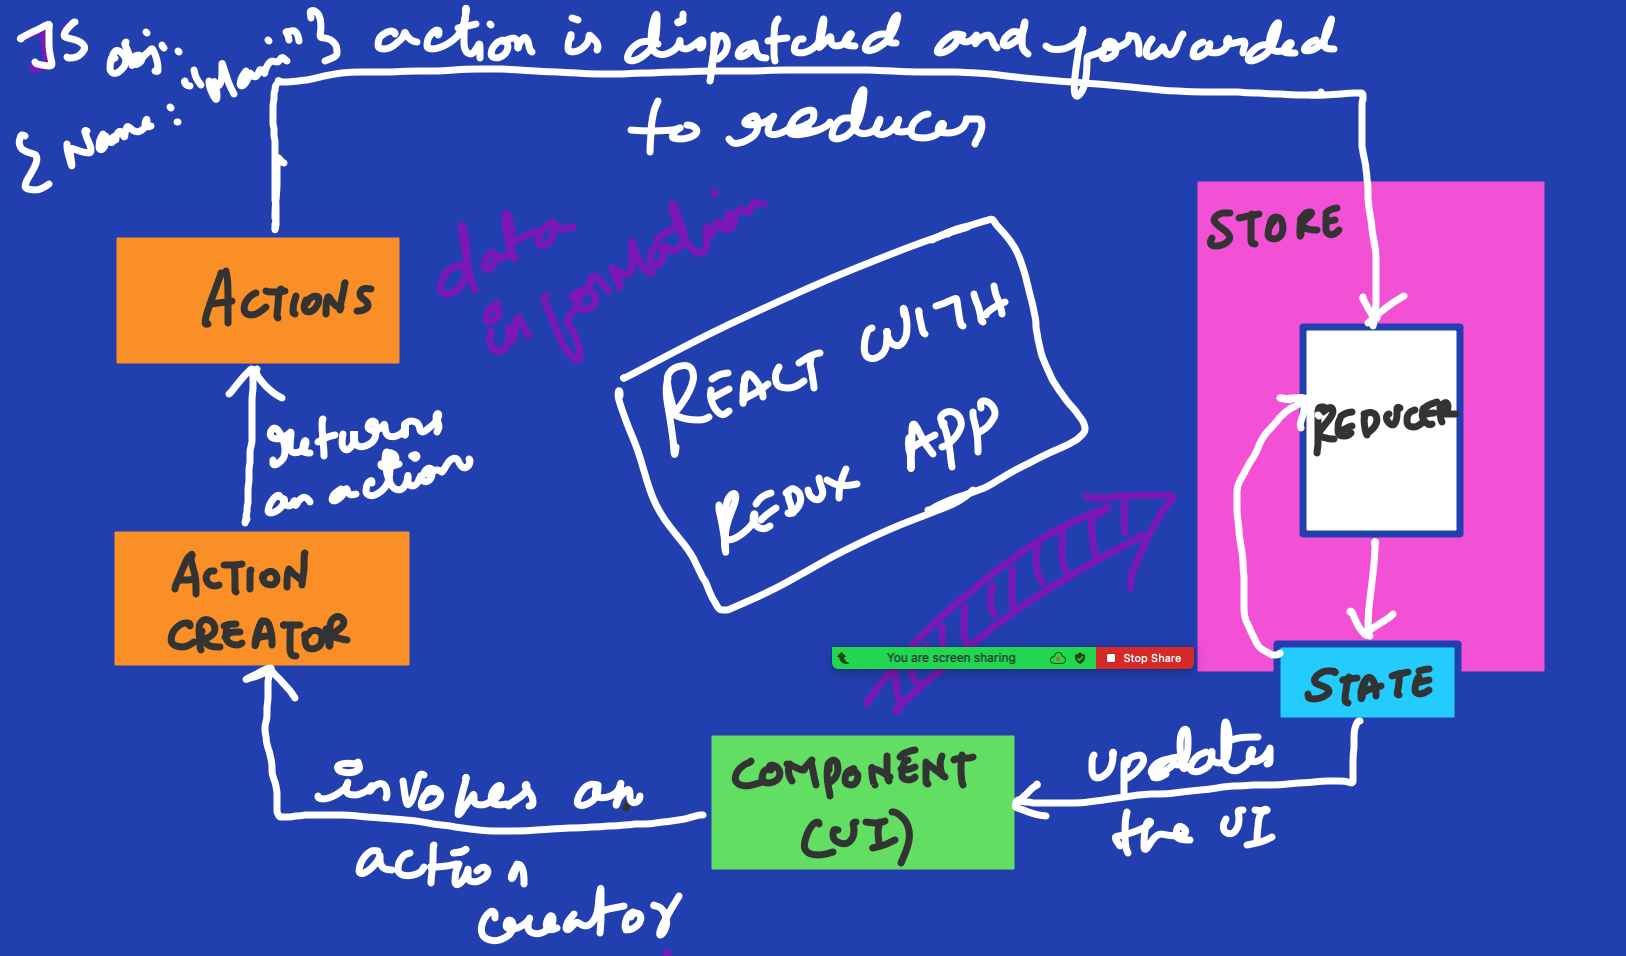 JS Obj:
{ Name: "Mani" }
action is dispatched and forwarded
to reducer
STORE
ACTIONS
data
information
REACT WITH
REDUX APP
REDUCER
returns
an action
ACTION
CREATOR
You are screen sharing
Stop Share
STATE
COMPONENT
(UI)
updates
the UI
invokes an
action
creator